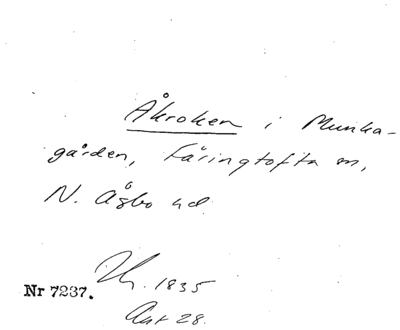 Åkroken i Munka-
gården, Färingtofta sn,
N. Åsbo hd.
Nr 7237. 1835
Akt 28.